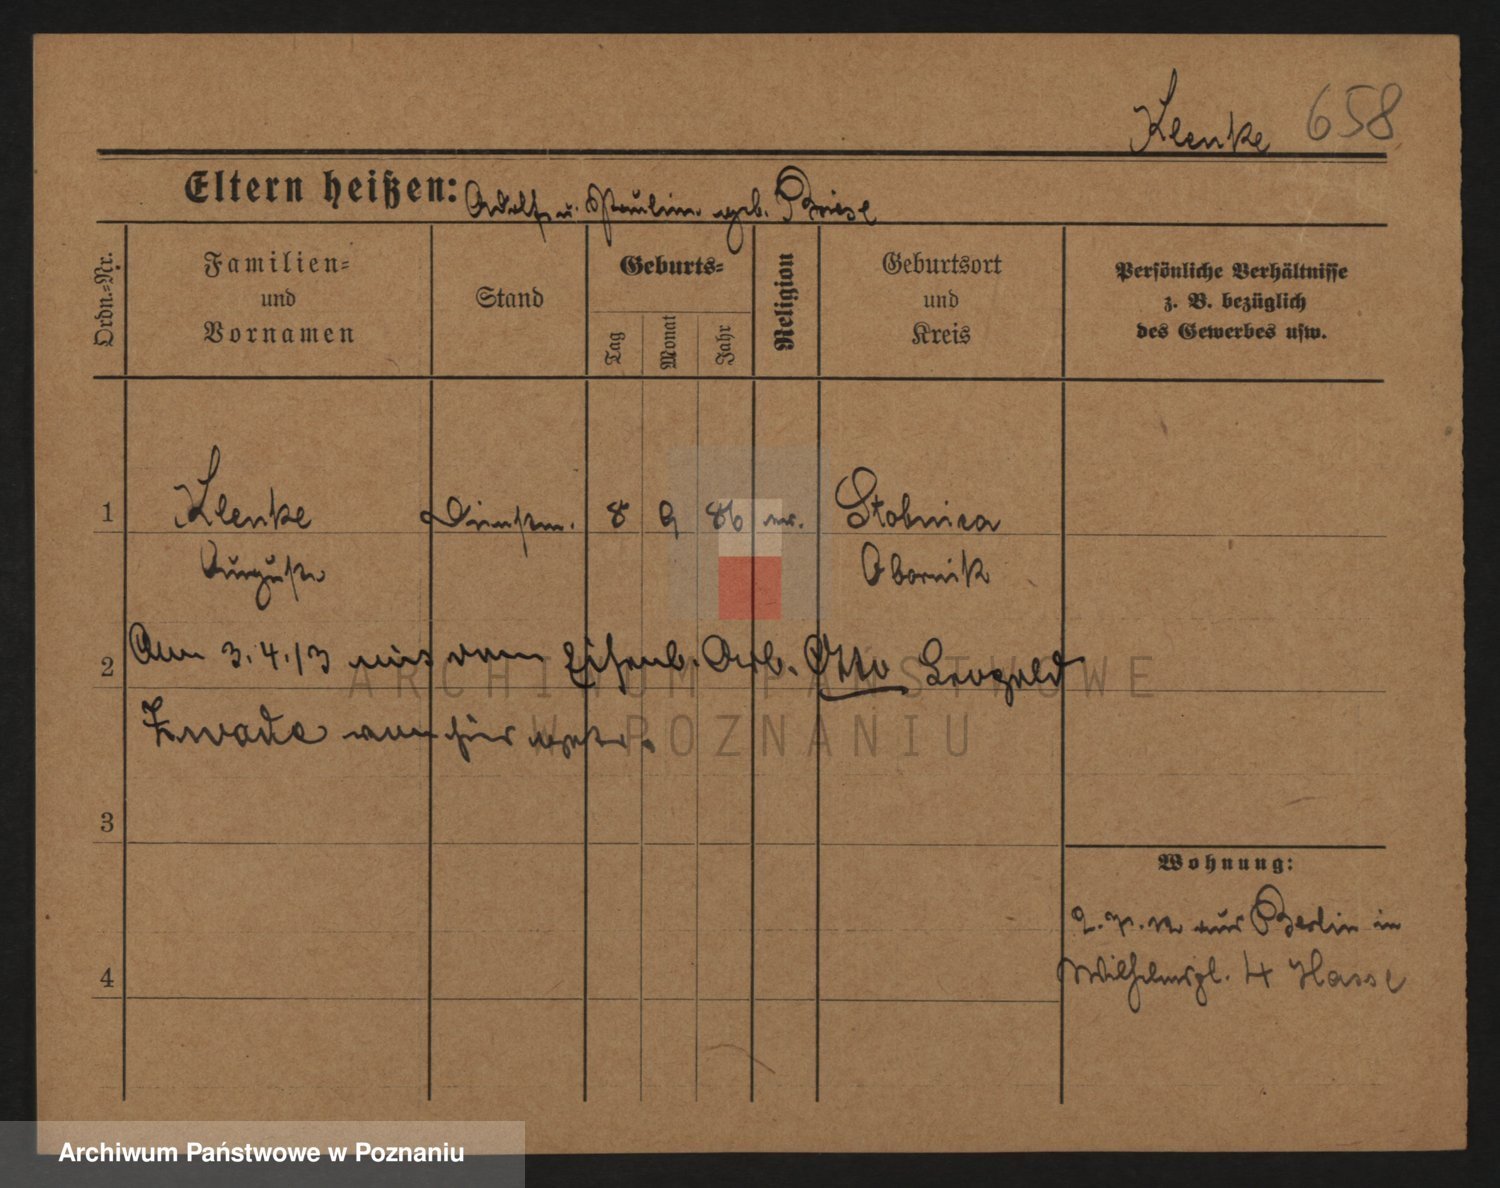 Klenke 658
Eltern heißen: Adolf u. Pauline geb. Briese
Ordn.-Nr.
Familien-
und
Vornamen
Stand
Geburts-
Tag
Monat
Jahr
Religion
Geburtsort
und
Kreis
Persönliche Verhältnisse
z. B. bezüglich
des Gewerbes usw.
1 Klenke Dienstm. 8 9 86 ev. Stobnica
Auguste Obornik
2 Am 3.4.13 mit dem Eisenb. Arb. Otto Leopold
von hier
ARCHIWUM PAŃSTWOWE
W POZNANIU
3
Wohnung:
Berlin in
Wilhelmspl. 4 Hasse
4
Archiwum Państwowe w Poznaniu